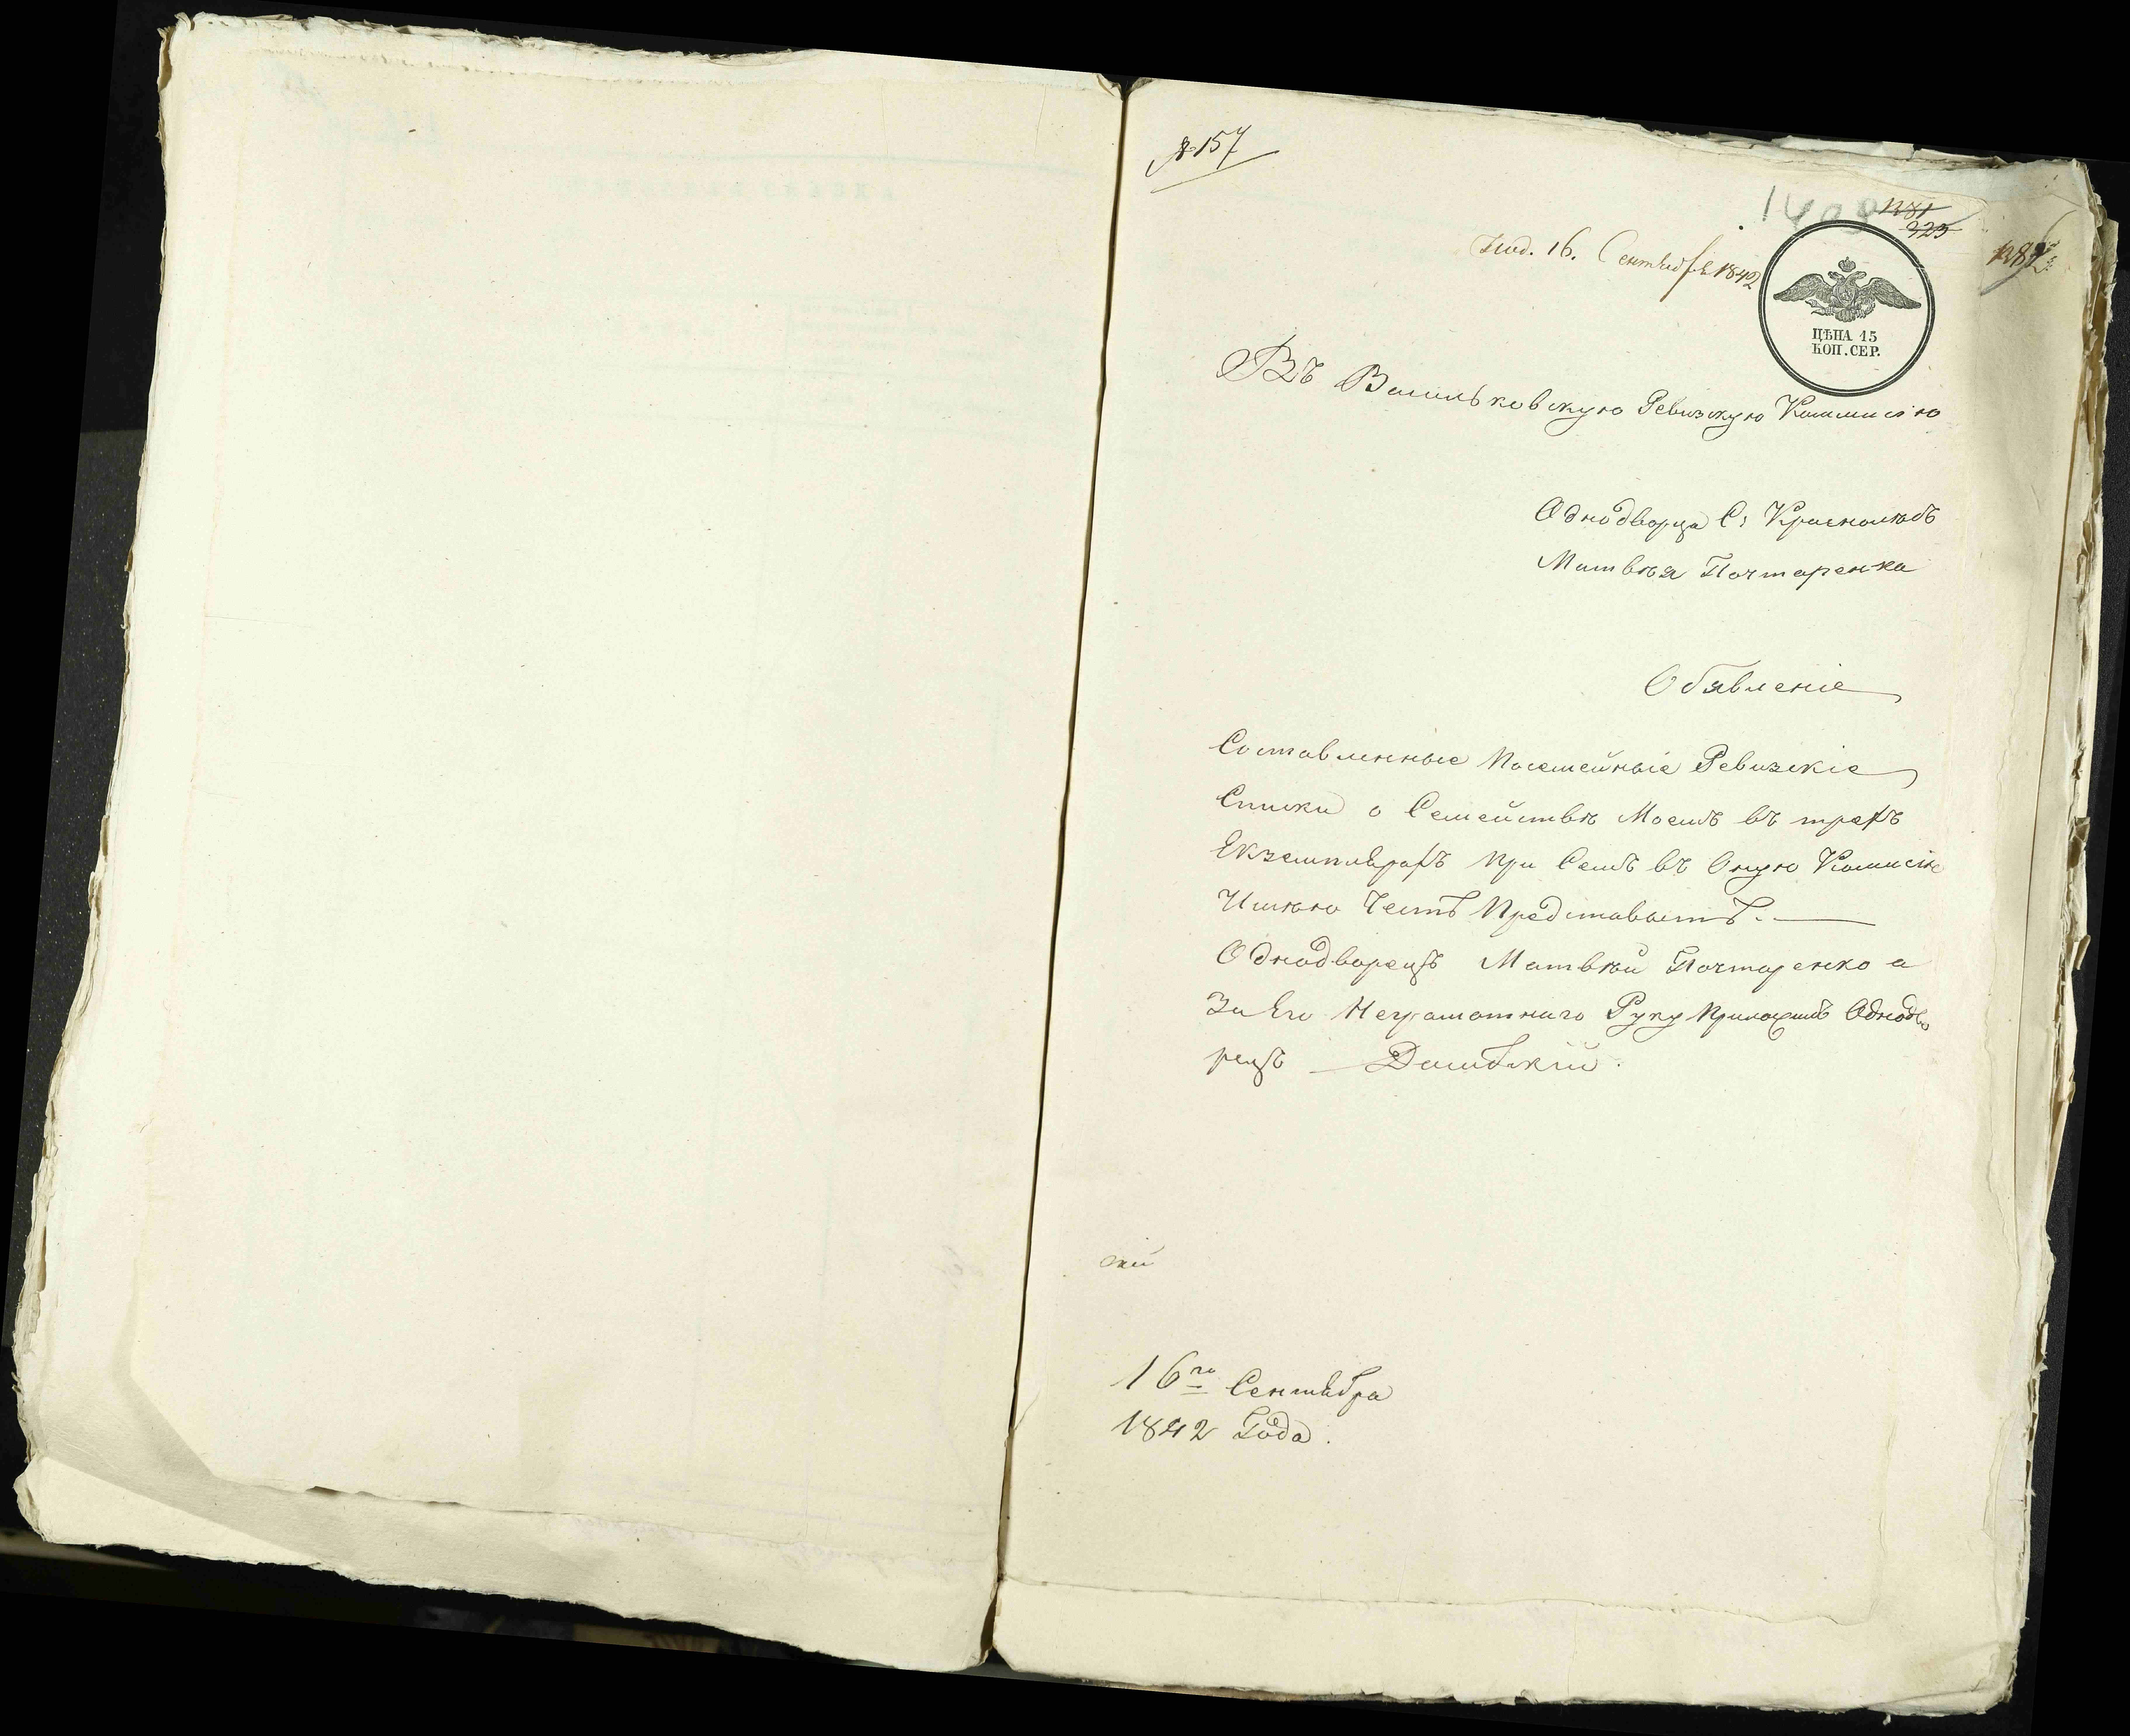 № 157
1381
325
Под. 16. Сентября 1842
ЦѢНА 15
КОП. СЕР.
Въ Васильковскую Ревизкую Коммисію
Однодворца С: Краснолѣсъ
Матвѣя Почтаренка
Обявленіе
Составленные Посемейныіе Ревизскіе
Списки о Семействѣ Моемъ въ трехъ
Екземплярахъ при Семъ въ Оную Комисію
Имѣю Честь Представить.
Однодворецъ Матвѣй Почтаренко а
За Его Неграмотнаго Руку Приложилъ Однодво
рецъ Домбскій.
16го Сентября
1842 Года.